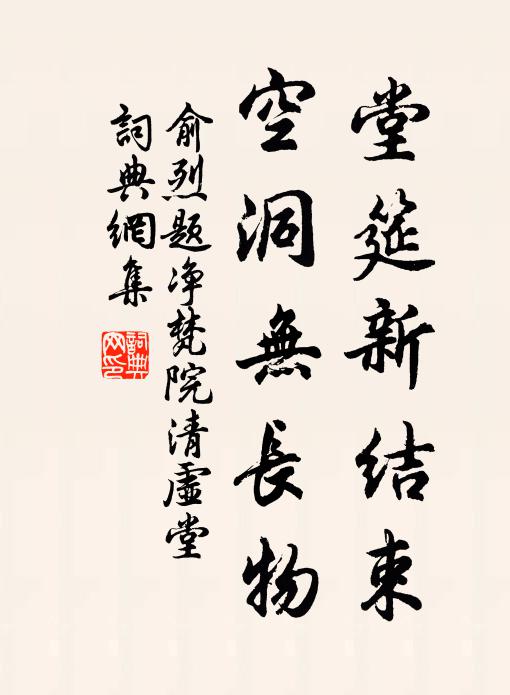 堂筵新结束
空洞無長物
俞烈題净梵院清虚堂
詞典網集
詞典網印